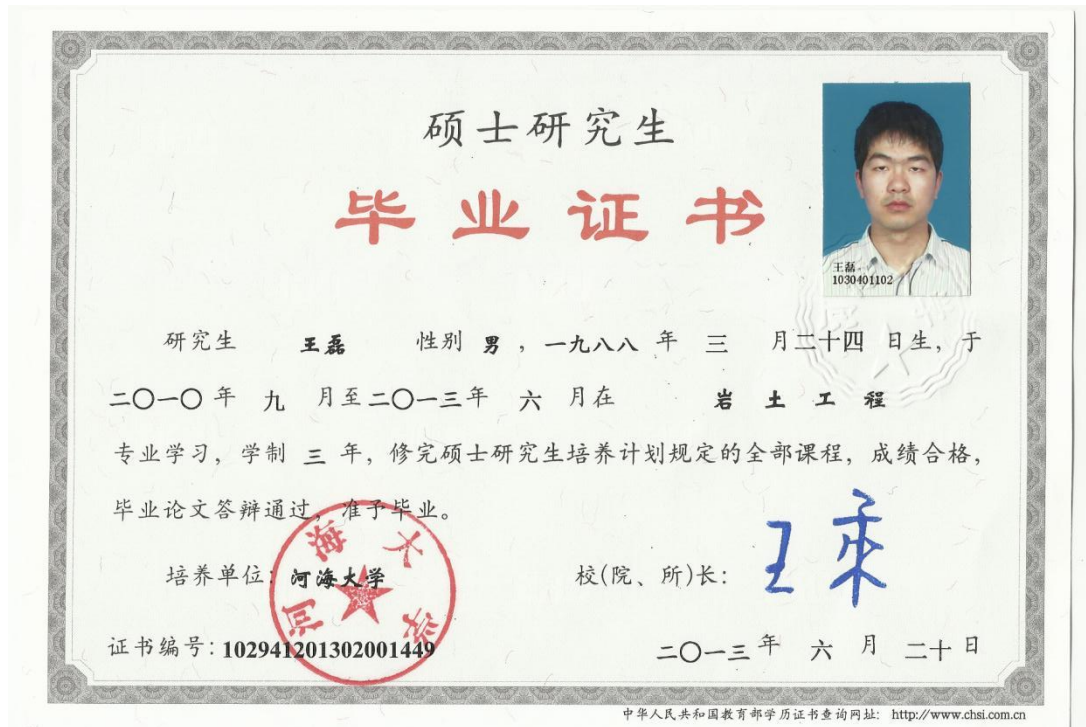 硕士研究生
毕业证书
王磊
1030401102
研究生 王磊 性别 男 ，一九八八 年 三 月二十四 日生，于
二〇一〇年 九 月至二〇一三年 六 月在 岩土工程
专业学习，学制 三 年，修完硕士研究生培养计划规定的全部课程，成绩合格，
毕业论文答辩通过，准予毕业。
培养单位：河海大学
河海大学
校(院、所)长：
证书编号：102941201302001449
二〇一三年 六 月 二十日
中华人民共和国教育部学历证书查询网址： http://www.chsi.com.cn